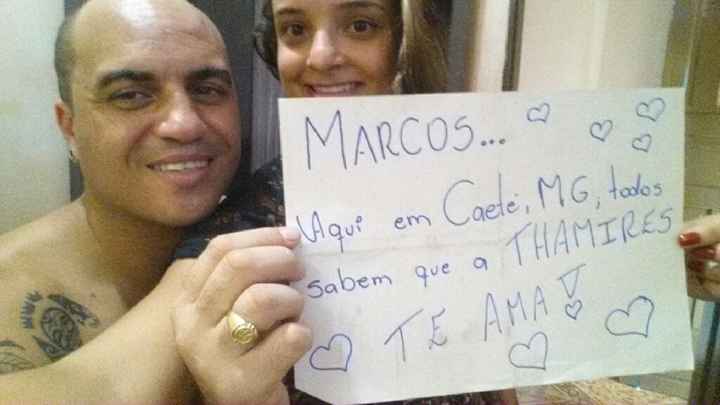 MARCOS...
Aqui em Caeté, MG, todos
sabem que a THAMIRES
TE AMA!